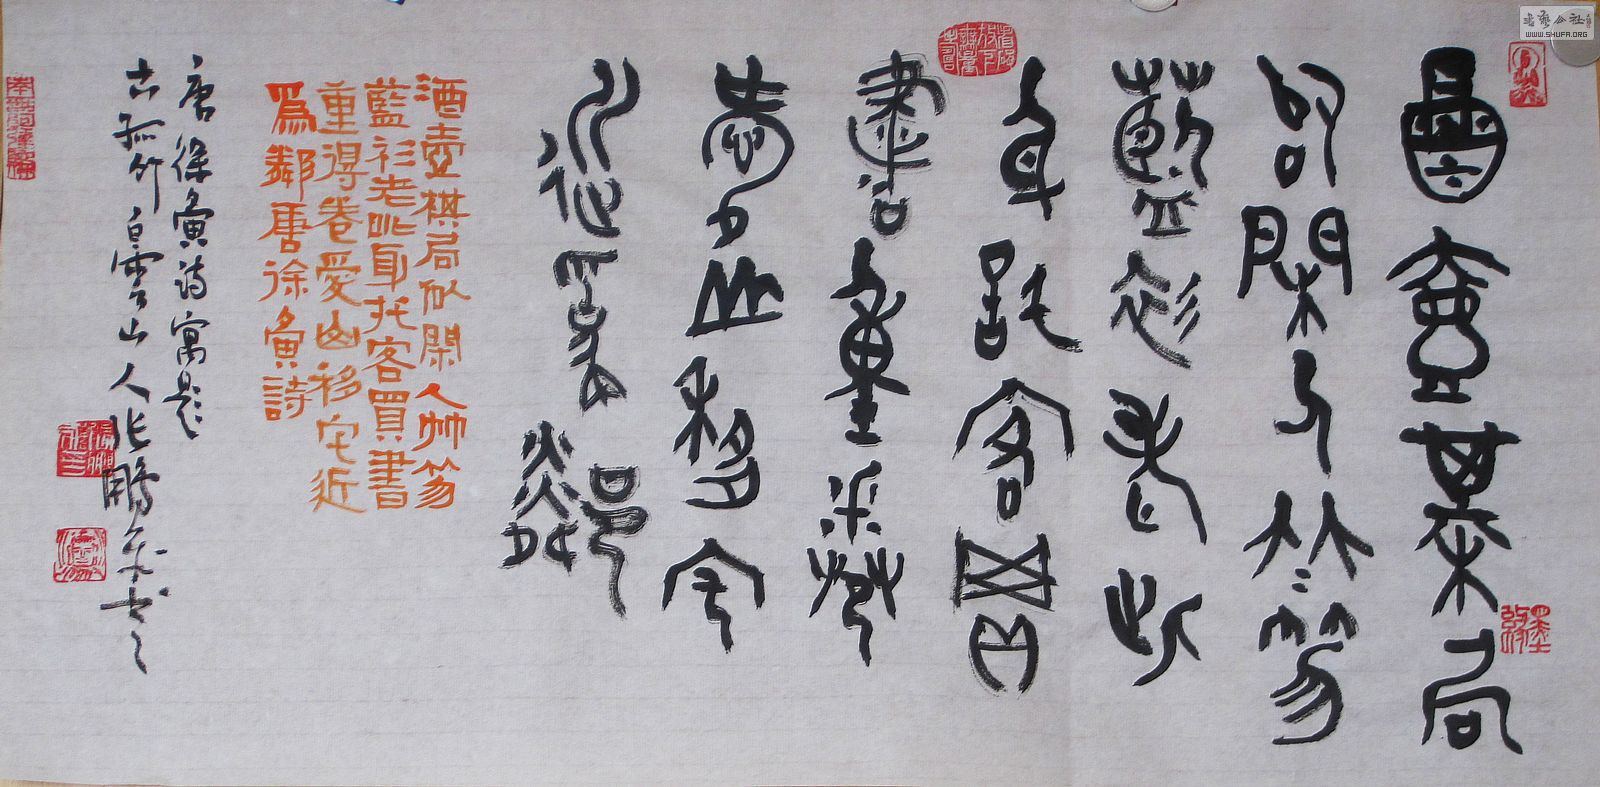 酒壺棊局
似閑人竹笏
藍衫老此
身託客買
書重卷
愛山移宅
近爲鄰
酒壺棋局似閑人竹笏
藍衫老此身托客買書
重得卷愛山移宅近
爲鄰唐徐夤詩
唐徐夤詩寓題
古孤竹白雲山人張鵬
墨緣
書藝公社
WWW.SHUFA.ORG